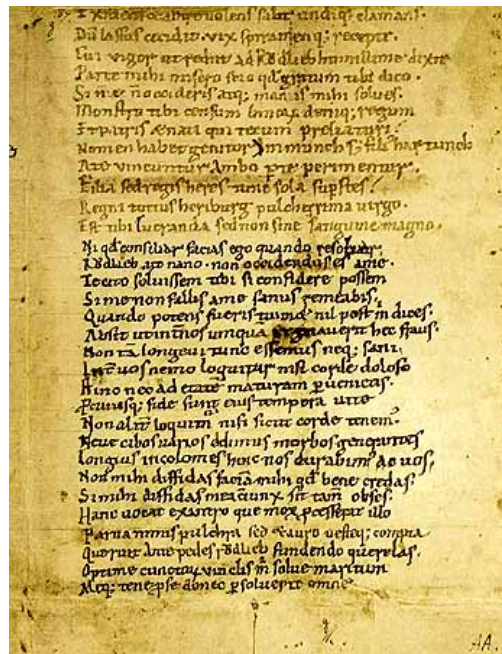 Dū lassus cecidit vix spiramenq; recepit.
Cui vigor ut rediit ad Rŏdlieb humillime dixit
Parce mihi misero scio qđ gratum tibi dico.
Si me n̄ occideris atq; manus mihi solves.
Monstro tibi censum binorū deniq; regum
Et patris & nati qui tecum preliantur.
Nomen habet genitor Immunch & fili' hartunch
A te vincuntur ambo pter perimentur.
Filia sed regis heres tunc sola supstes.
Regni totius heriburg pulcherrima virgo.
Est tibi lucranda sed non sine sanguine magno.
Ni qđ consiliar facias ego quando resolvar.
Rŏdlieb ait nano. non occidendus es a me.
Te cito solvissem tibi si confidere possem
Si me non fallis a me sanus remeabis.
Quando potens fueris nil post m̄ dices.
Absit ut int̄ nos unquā regnaverit hec fraus.
Non tā longevi tunc essemus neq; sani.
Int̄ vos nemo loquitur nisi corde doloso
Hinc neq; ad etatē maturam pvenietis.
Pcuiusq; fide sunt eius tempora vite
Non alit̄ loquim̄ nisi sicut corde tenem̄.
Neve cibos varios edimus morbos generantes
Longius incolomes hinc nos durabim̄ ac vos.
Non mihi diffidas faciā mihi qđ bene credas.
Si mihi diffidas mea cunx sit tam̄ obses.
Hanc vocat ex antro que mox pcessit illo
Parva nimis pulchra sed & auro vesteq; compta
Que ruit ante pedes rŏdlieb fundendo querelas.
Optime cunctorū vinclis m̄ solve maritum
Meq; tene pse donec psolverit omne